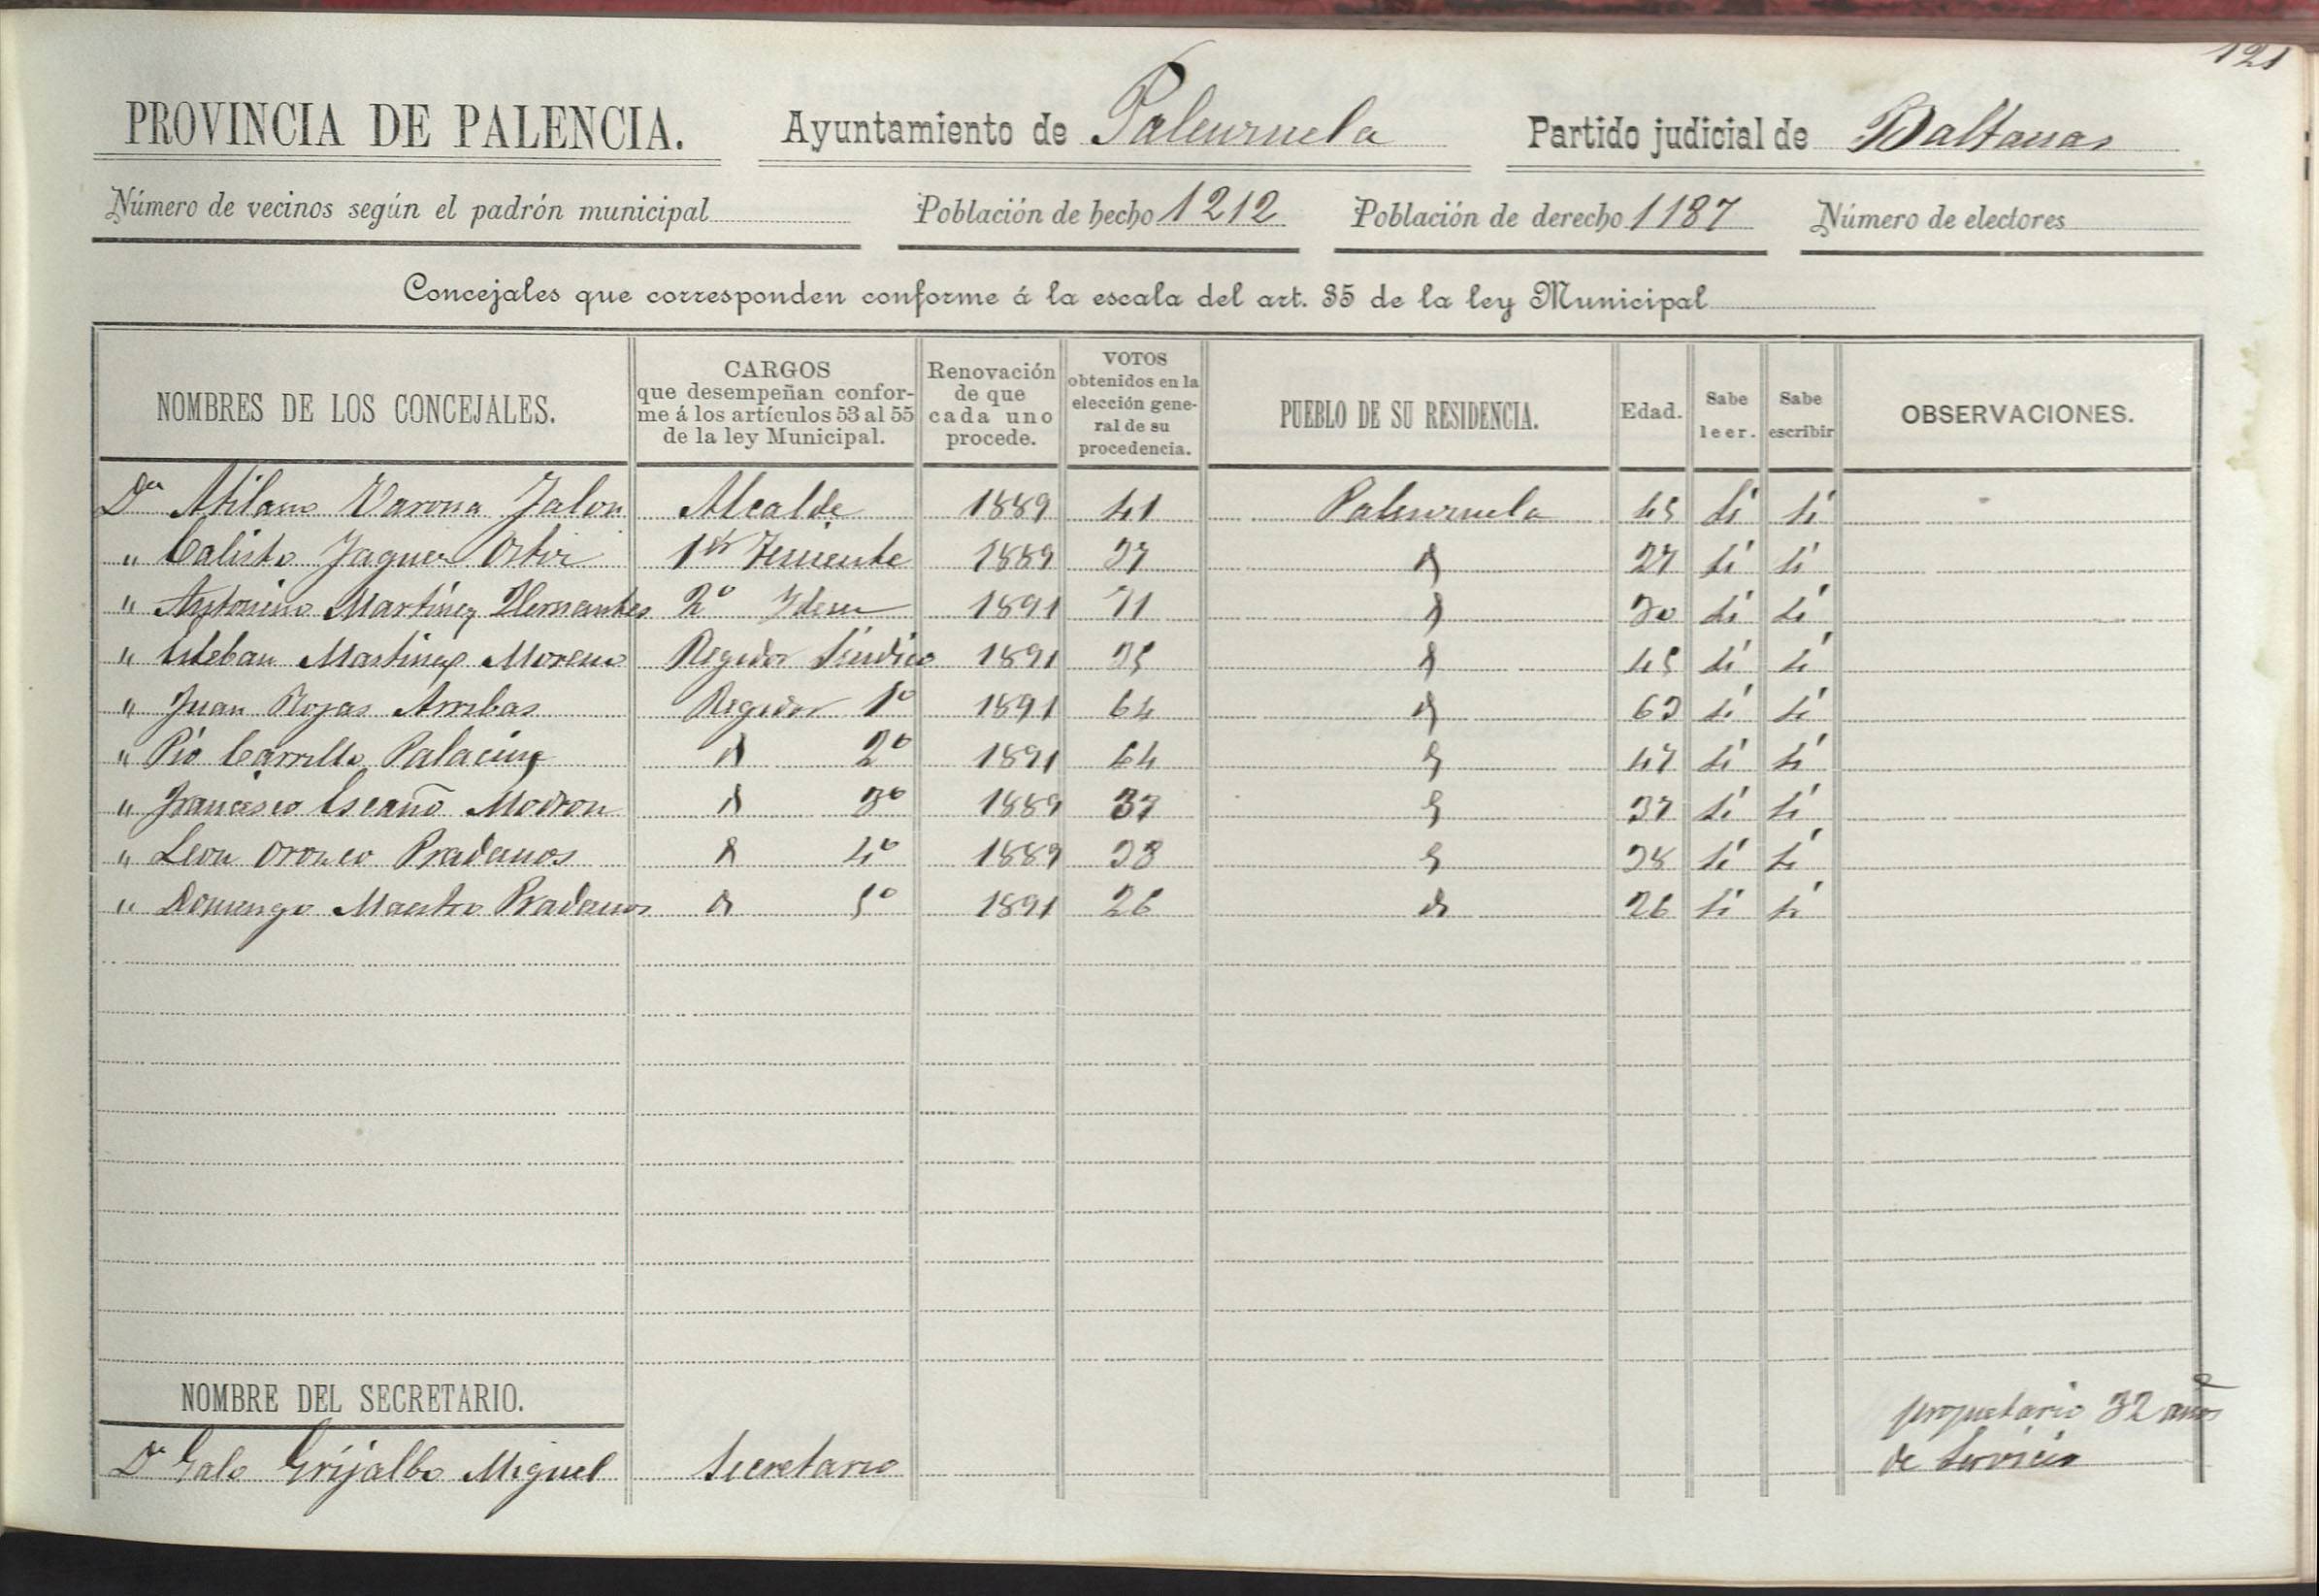 121
PROVINCIA DE PALENCIA. Ayuntamiento de Palenzuela Partido judicial de Baltanas
Número de vecinos según el padrón municipal Población de hecho 1212 Población de derecho 1187 Número de electores
Concejales que corresponden conforme á la escala del art. 35 de la ley Municipal
NOMBRES DE LOS CONCEJALES. CARGOS que desempeñan conforme á los artículos 53 al 55 de la ley Municipal. Renovación de que cada uno procede. VOTOS obtenidos en la elección general de su procedencia. PUEBLO DE SU RESIDENCIA. Edad. Sabe leer. Sabe escribir OBSERVACIONES.
Dn Atilano Varona Jalon Alcalde 1889 41 Palenzuela 45 Si Si
" Calisto Jaguez 1er Teniente 1889 37 27 Si Si
" Antonino Martinez Hernantes 2º Idem 1891 71 30 Si Si
" Esteban Martinez Moreno Regidor Sindico 1891 35 45 Si Si
" Juan Rojas Arribas Regidor 1º 1891 64 63 Si Si
" Pio Carrillo Palacin 2º 1891 64 47 Si Si
" Francisco Escaño Modron 3º 1889 37 37 Si Si
" Leon Orozco Pradanos 4º 1889 38 38 Si Si
" Domingo Maestro Pradanos 5º 1891 26 26 Si Si
NOMBRE DEL SECRETARIO.
Dn Galo Grijalbo Miguel Secretario propietario 32 años
de Servicio